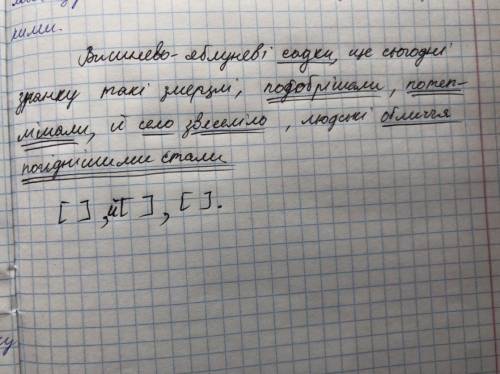 ними.
Вишнево-яблуневі садки, ще сьогодні
зранку такі змерзлі, подобрішали, потеп-
лішали, й село звеселіло, людські обличчя
погіднішими стали
[ ], й [ ], [ ].